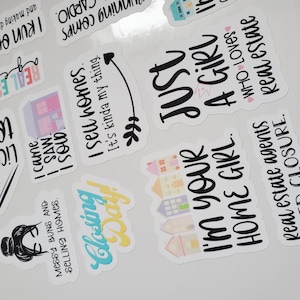 I RUN ON
RUNNING COMPS
CARDIO
REAL E
I CAME
I SAW
I SOLD
I sell homes.
It's kinda my thing
JUST
A GIRL
WHO LOVES
Real estate
MESSY BUNS AND
SELLING HOMES
Closing
Day!
I'M YOUR
HOME GIRL.
Real estate agents
CLOSURE.